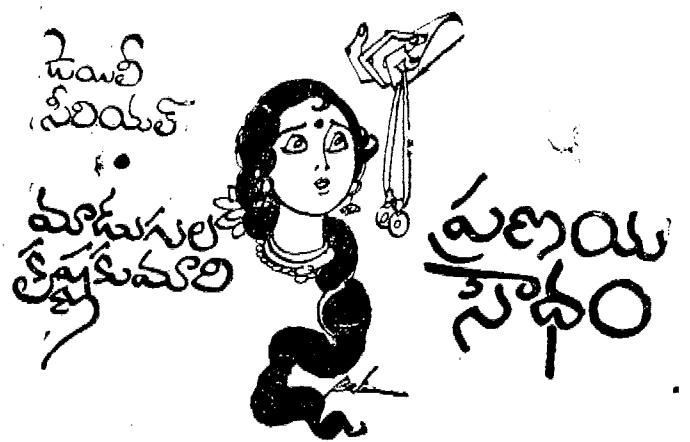 డెయిలీ
సీరియల్
మాడుగుల
కృష్ణకుమారి
ప్రణయ
సౌధం